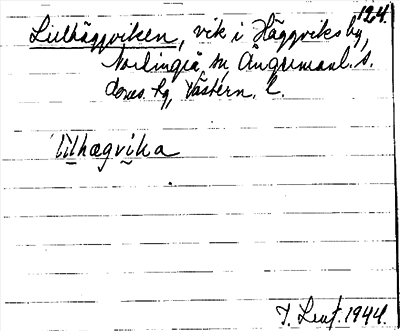 1944.
Lillhäggviken, vik i Häggviks by,
Nordingrå sn, Ångermanl. s.
doms. hg, Västern. l.
lilhægvika
1944.